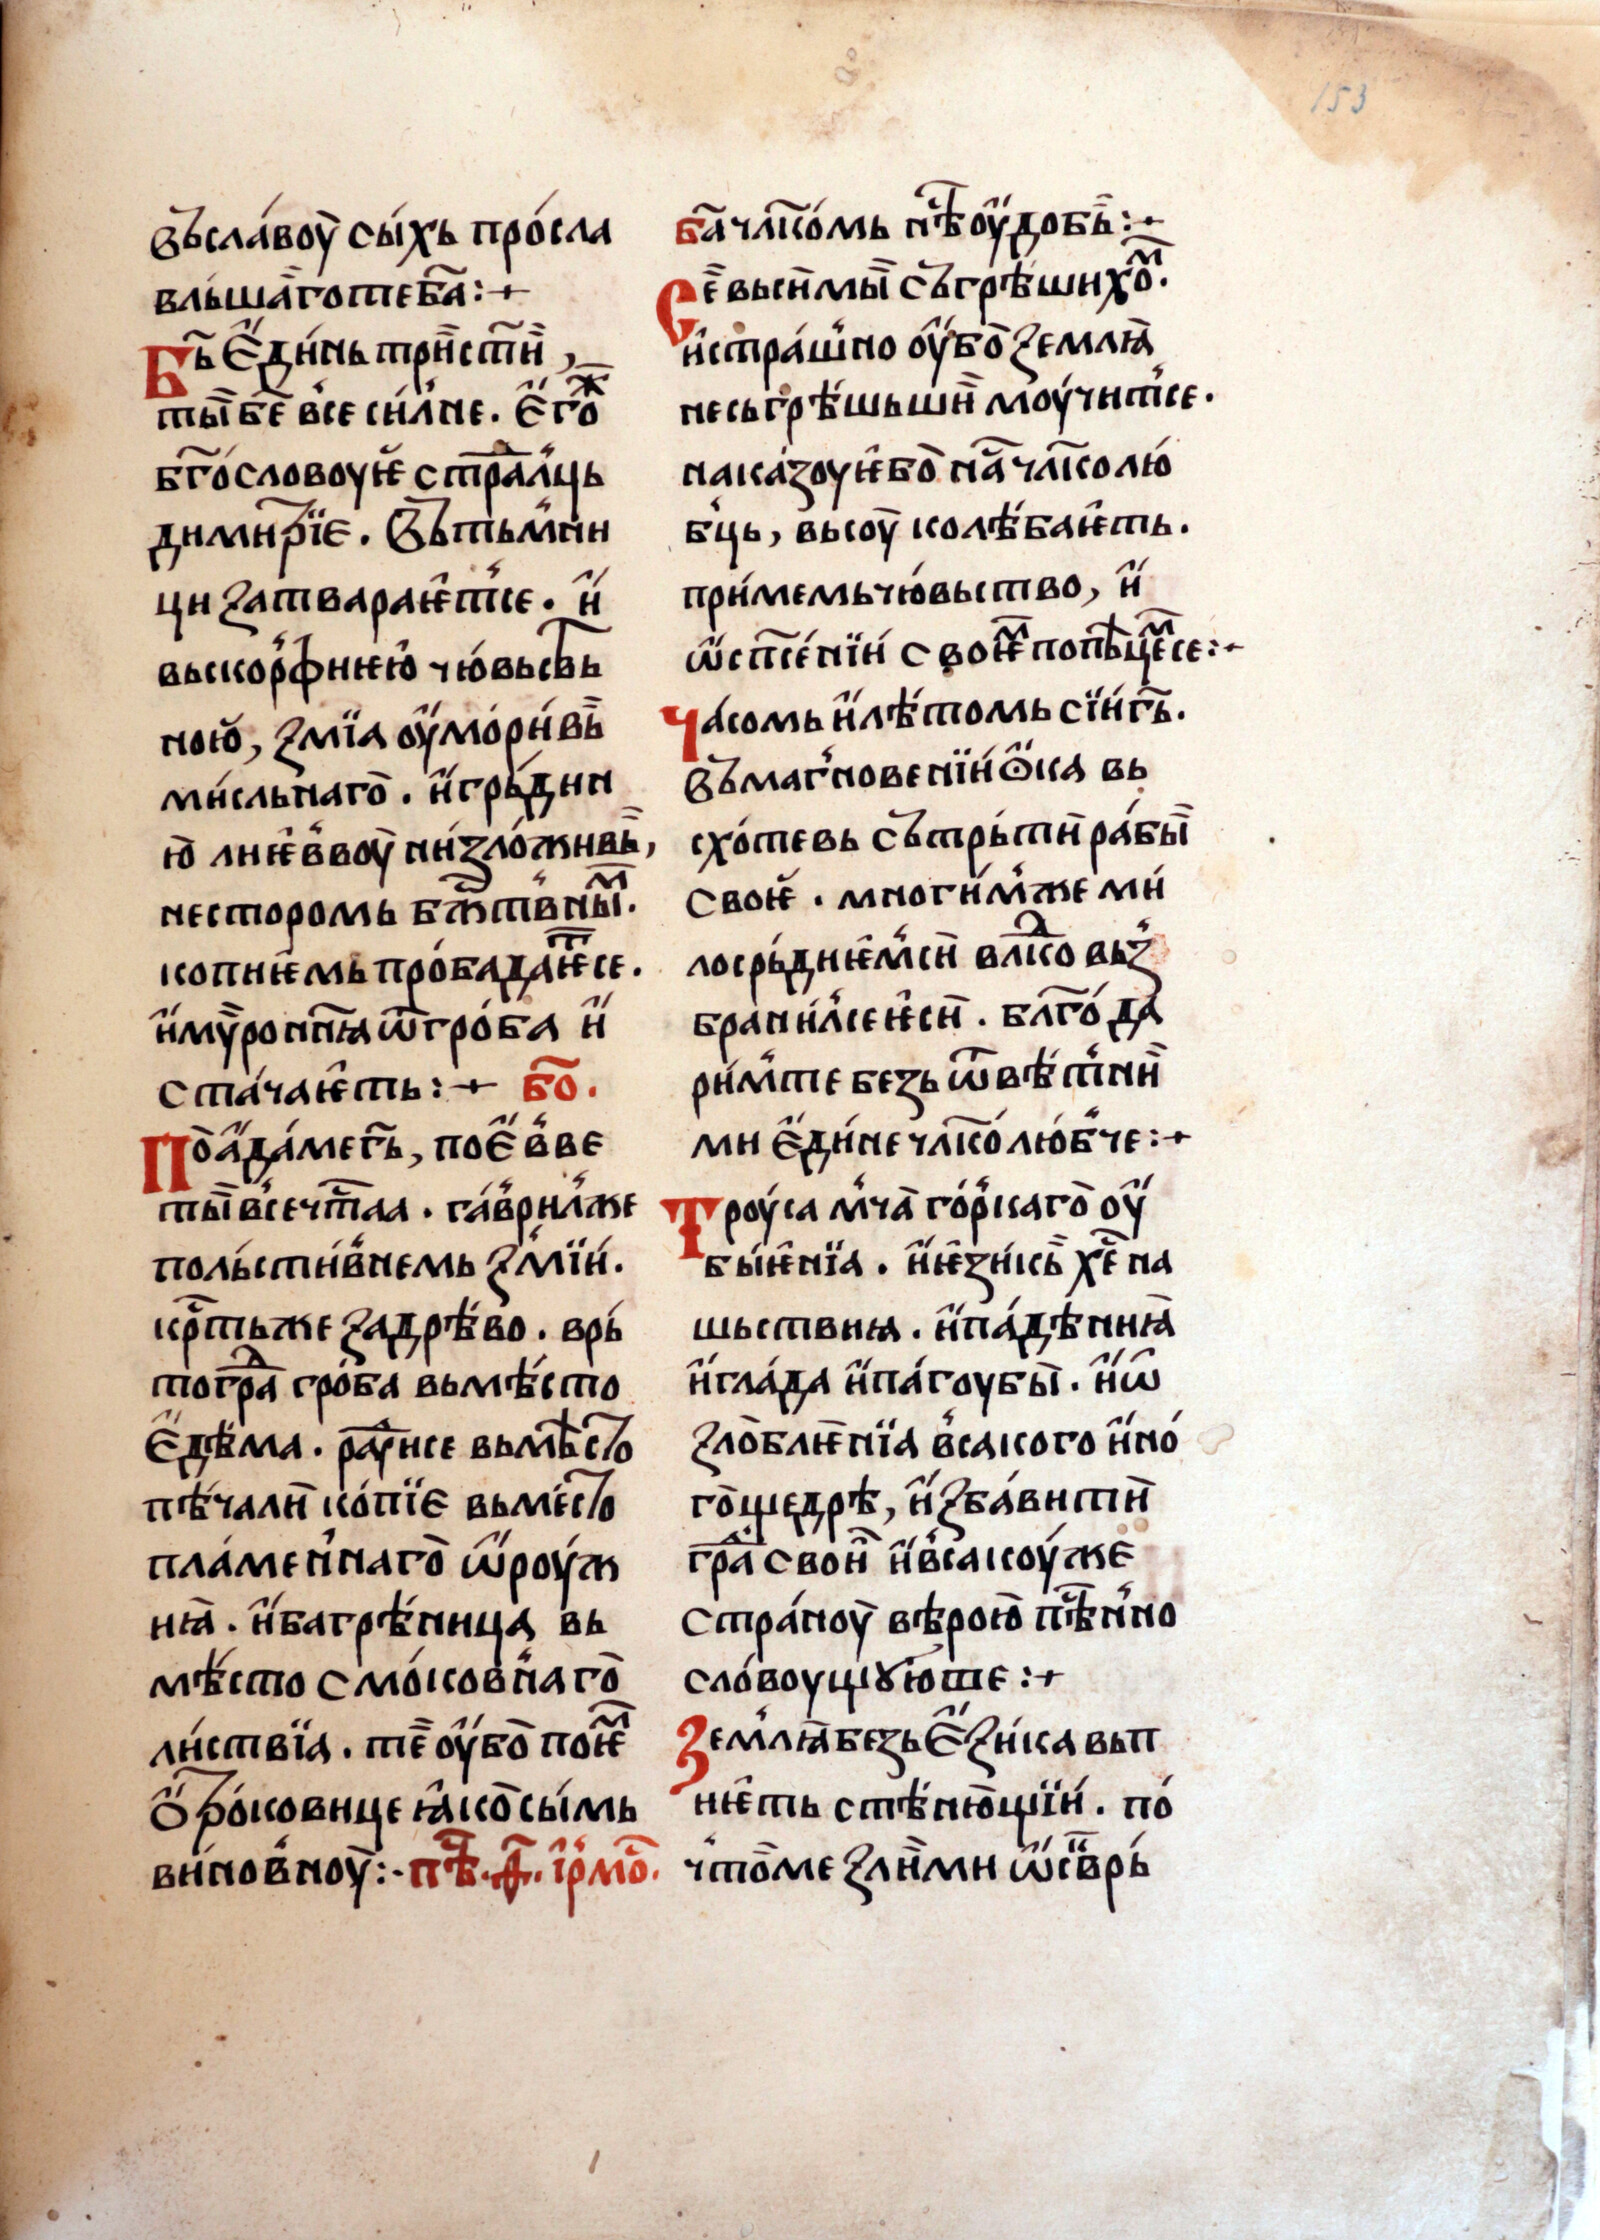 153
Въсла́воу̀ сы́хь про́сла
вльша̀готе б҃а :+
Б҃ь є҆ди́нь трїи̑ст҇нѝ,
ты̀ бе̑ все си́лне. є҆го̑ж
бг҃о́словоуѥ страда́лць
димитрїє. Въ тьмни
ци затвараѥ҆тсе. и҆
выскорфиѥю̀ чю́вьств
ною̀, змїа оу҆мо́ри́вь̀
ми́сльнаго̀. и҆ грь́дин
ю̀ лиѥ́ввоу̀ ни́зло́живь̀,
несторомь бж҇твны̑м.
копиѥмь про́бадаѥ̑тсе.
и҆ му̀ро нн҃ꙗ ѿ гро́ба и҆
ста́чаѥ̑ть :+ бо̑.
По а҆да́ме г҃ь, по є҆вве
ты̀ всечт҇аа. га́врил же
польсти́внемь змїи́.
кр҇ть же за дрѣ́во. врь́
тогра̑д гро́ба вьмѣ́сто
є҆дѣма. ра̑д҇ѵисе вьмѣсто
пѣ́чали̑ ко́пїє вьме́сто
пла́меннаго̀ ѡ҆роу́ж
нꙗ̀. и҆ багрѣ́ница вь
мѣ́сто смо́ковнаго̀
ли́ствїа. те̑ оу҆бо̀ поѥ̑м
ѻ҆тро́ковице ꙗ҆ко̀ сы́мь
ви́новноу̀ :- пѣ҇с. а҃. і҆рмо̑.
б҃а чл҃ко́мь нѣ҇ оу҆добь̀ :+
Се̑ вьси̑ мы̀ съгрѣши хо̑м.
и҆ стра́шно оу҆бо̀ землꙗ̀
несьгрѣ́шьши̑ моу́читсе.
нака́зоуѥ бо̀ на̑с чл҃колю́
бць, высоу̀ колѣ́баѥ̑ть.
при́мемь чю́вьство, и҆
ѡ҆ сп҃се́нїи́ своѥ̑м попѣце̑мсе :+
Ча́сомь и҆ лѣ́томь сїи́ г҃ь.
Въ магновенїи́ ѻ҆ка вь
схо́тевь сътрь́ти̑ ра́бы̀
своѥ. многи́м же ми
лосрь́диѥ̑мси̑ вл҃дко вьз
брани́лсе ѥ҆си̑. бл҃го́да
ри́мте безь ѿвѣтни̑
ми є҆ди́не чл҃ко́лю́бче :+
Троу́са мча̀ го́рькаго̀ оу҆
бы́ѥ̑нїа. и҆ ѥзи́кь̀ хе̑ на
шьствиꙗ. и҆ па́дѣниꙗ̀
и҆ гла́да и҆ па́гоубы̀. и҆ ѡ҆
зло̀блѥнїа всакого и҆но́
го̀ щедрѣ, и҆збавити̑
гра̑д свои̑ и҆ всакоу́же
стра́ноу̀ вѣрою̀ пѣ҇нно
сло́воущꙋюте :+
Землꙗ̀ безь є҆зи́ка вьп
иѥ̑ть стѣ́ню̀щїи́. по́
что̀ ме злы̑ми ѡ҆скврь́